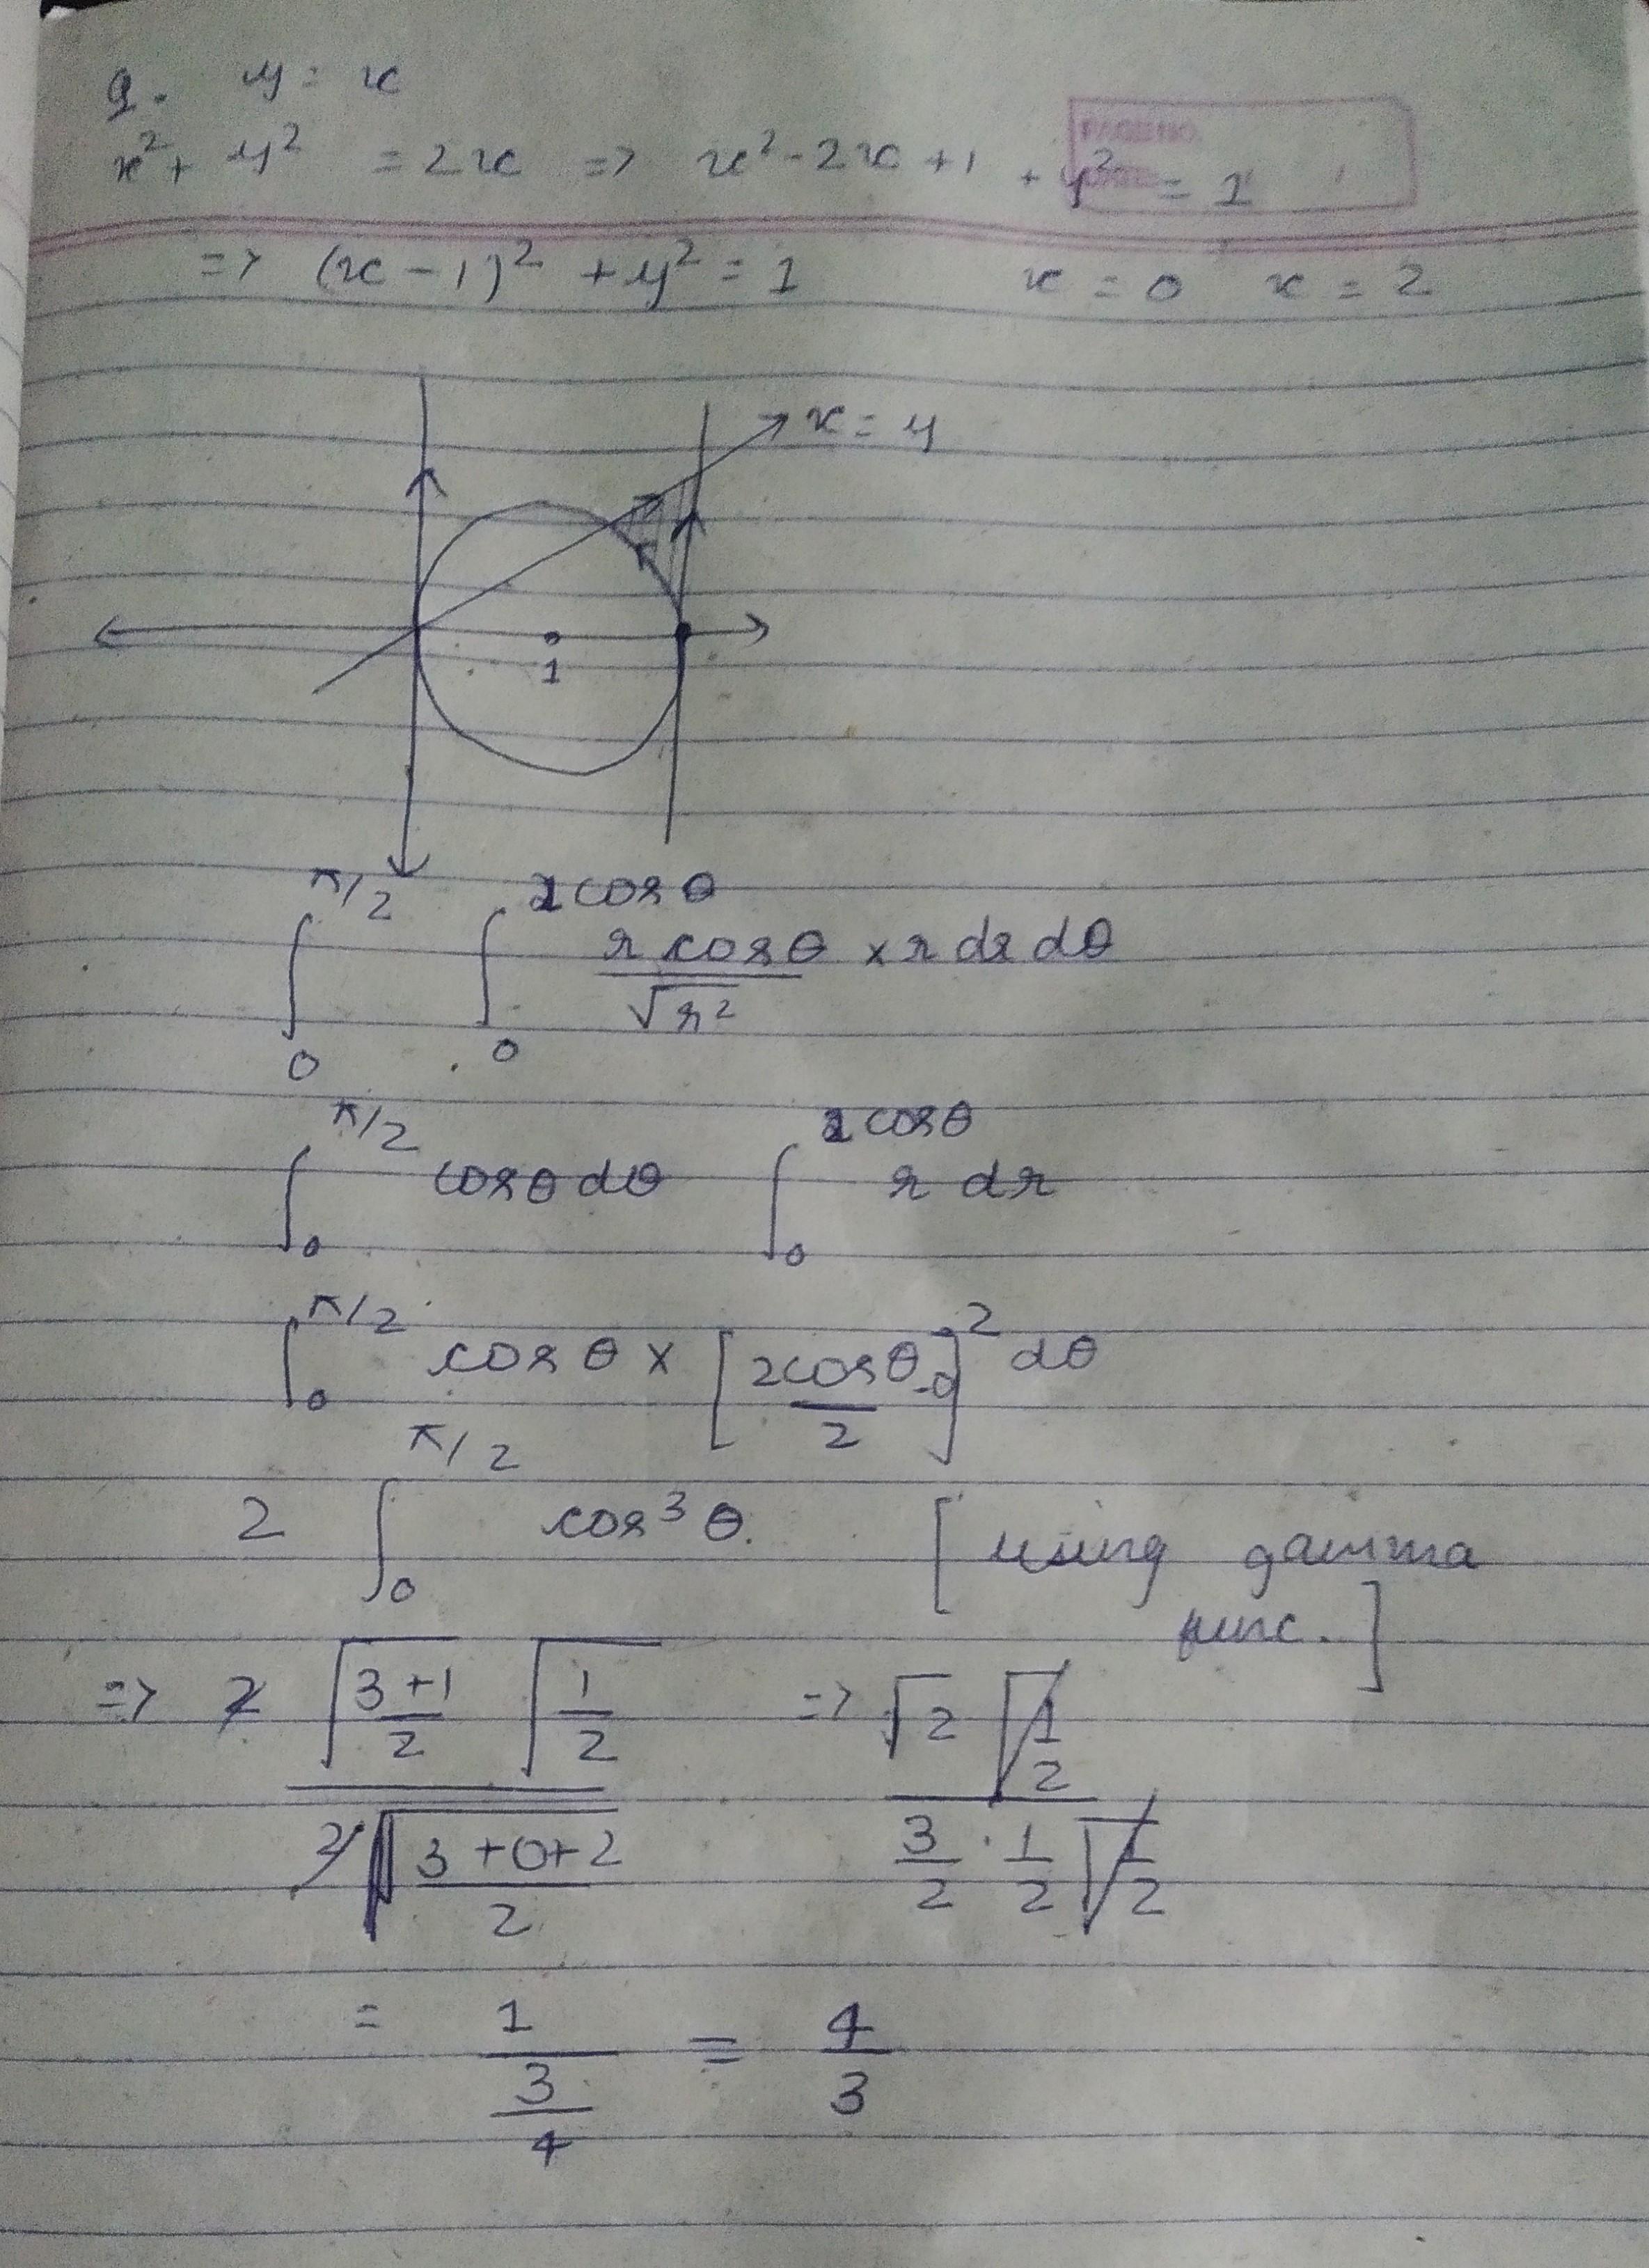 Q. y = x
x² + y² = 2x => x² - 2x + 1 + y² = 1
=> (x - 1)² + y² = 1 x = 0 x = 2
x = y
1
∫₀^{π/2} ∫₀^{2cosθ} (r cosθ / √r²) × r dr dθ
∫₀^{π/2} cosθ dθ ∫₀^{2cosθ} r dr
∫₀^{π/2} cosθ × [2cosθ - 0 / 2]² dθ
2 ∫₀^{π/2} cos³θ. [using gamma
func.]
=> 2 Γ(3+1 / 2) Γ(1/2) / 2 Γ(3+0+2 / 2) => Γ2 Γ(1/2) / (3/2 · 1/2 Γ(1/2))
= 1 / (3/4) = 4/3